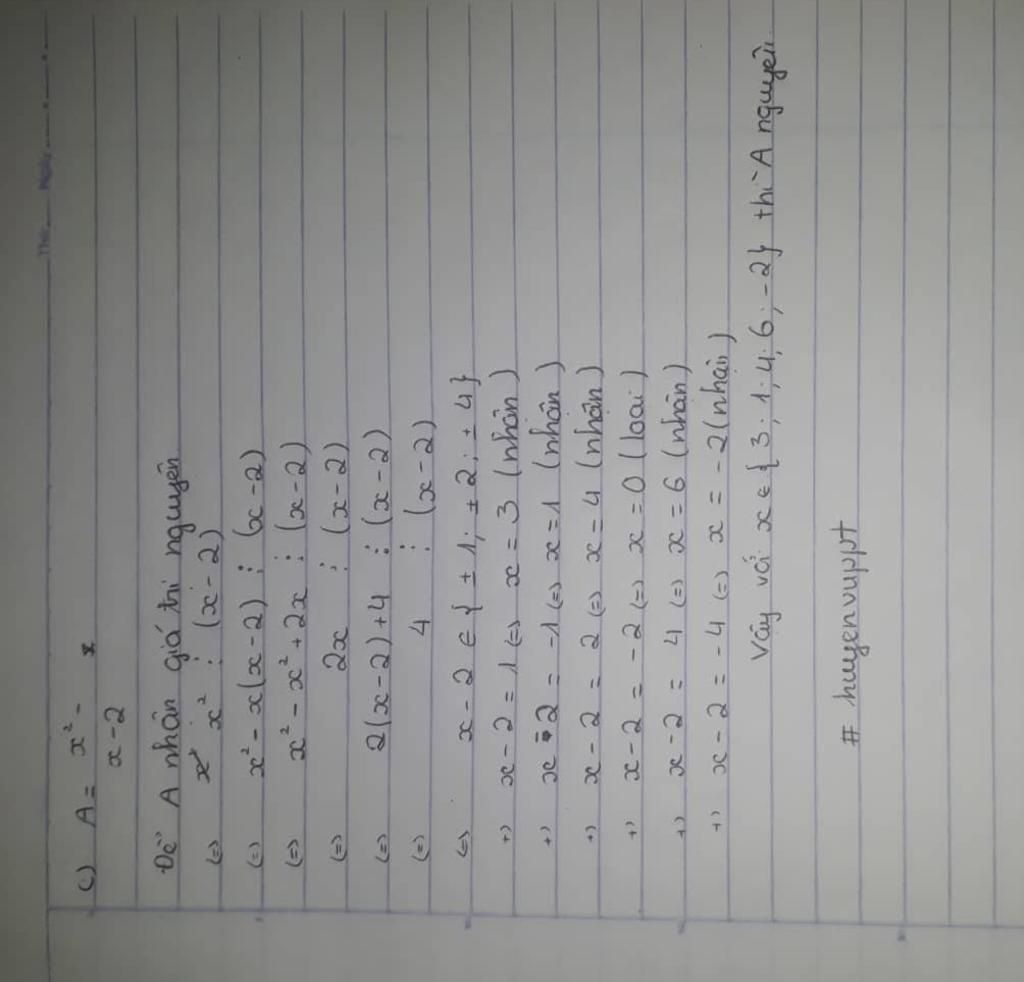 Thứ ..... Ngày ..... . ..... .
c) A = x² - x
x - 2
Để A nhận giá trị nguyên
(=) x² ⋮ (x - 2)
(=) x² - x(x - 2) ⋮ (x - 2)
(=) x² - x² + 2x ⋮ (x - 2)
(=) 2x ⋮ (x - 2)
(=) 2(x - 2) + 4 ⋮ (x - 2)
(=) 4 ⋮ (x - 2)
(=) x - 2 ∈ { ± 1; ± 2; ± 4}
+) x - 2 = 1 (=) x = 3 (nhận)
+) x - 2 = -1 (=) x = 1 (nhận)
+) x - 2 = 2 (=) x = 4 (nhận)
+) x - 2 = -2 (=) x = 0 (loại)
+) x - 2 = 4 (=) x = 6 (nhận)
+) x - 2 = -4 (=) x = -2 (nhận)
Vậy với x ∈ { 3; 1; 4; 6; -2} thì A nguyên
# huyenvuppt